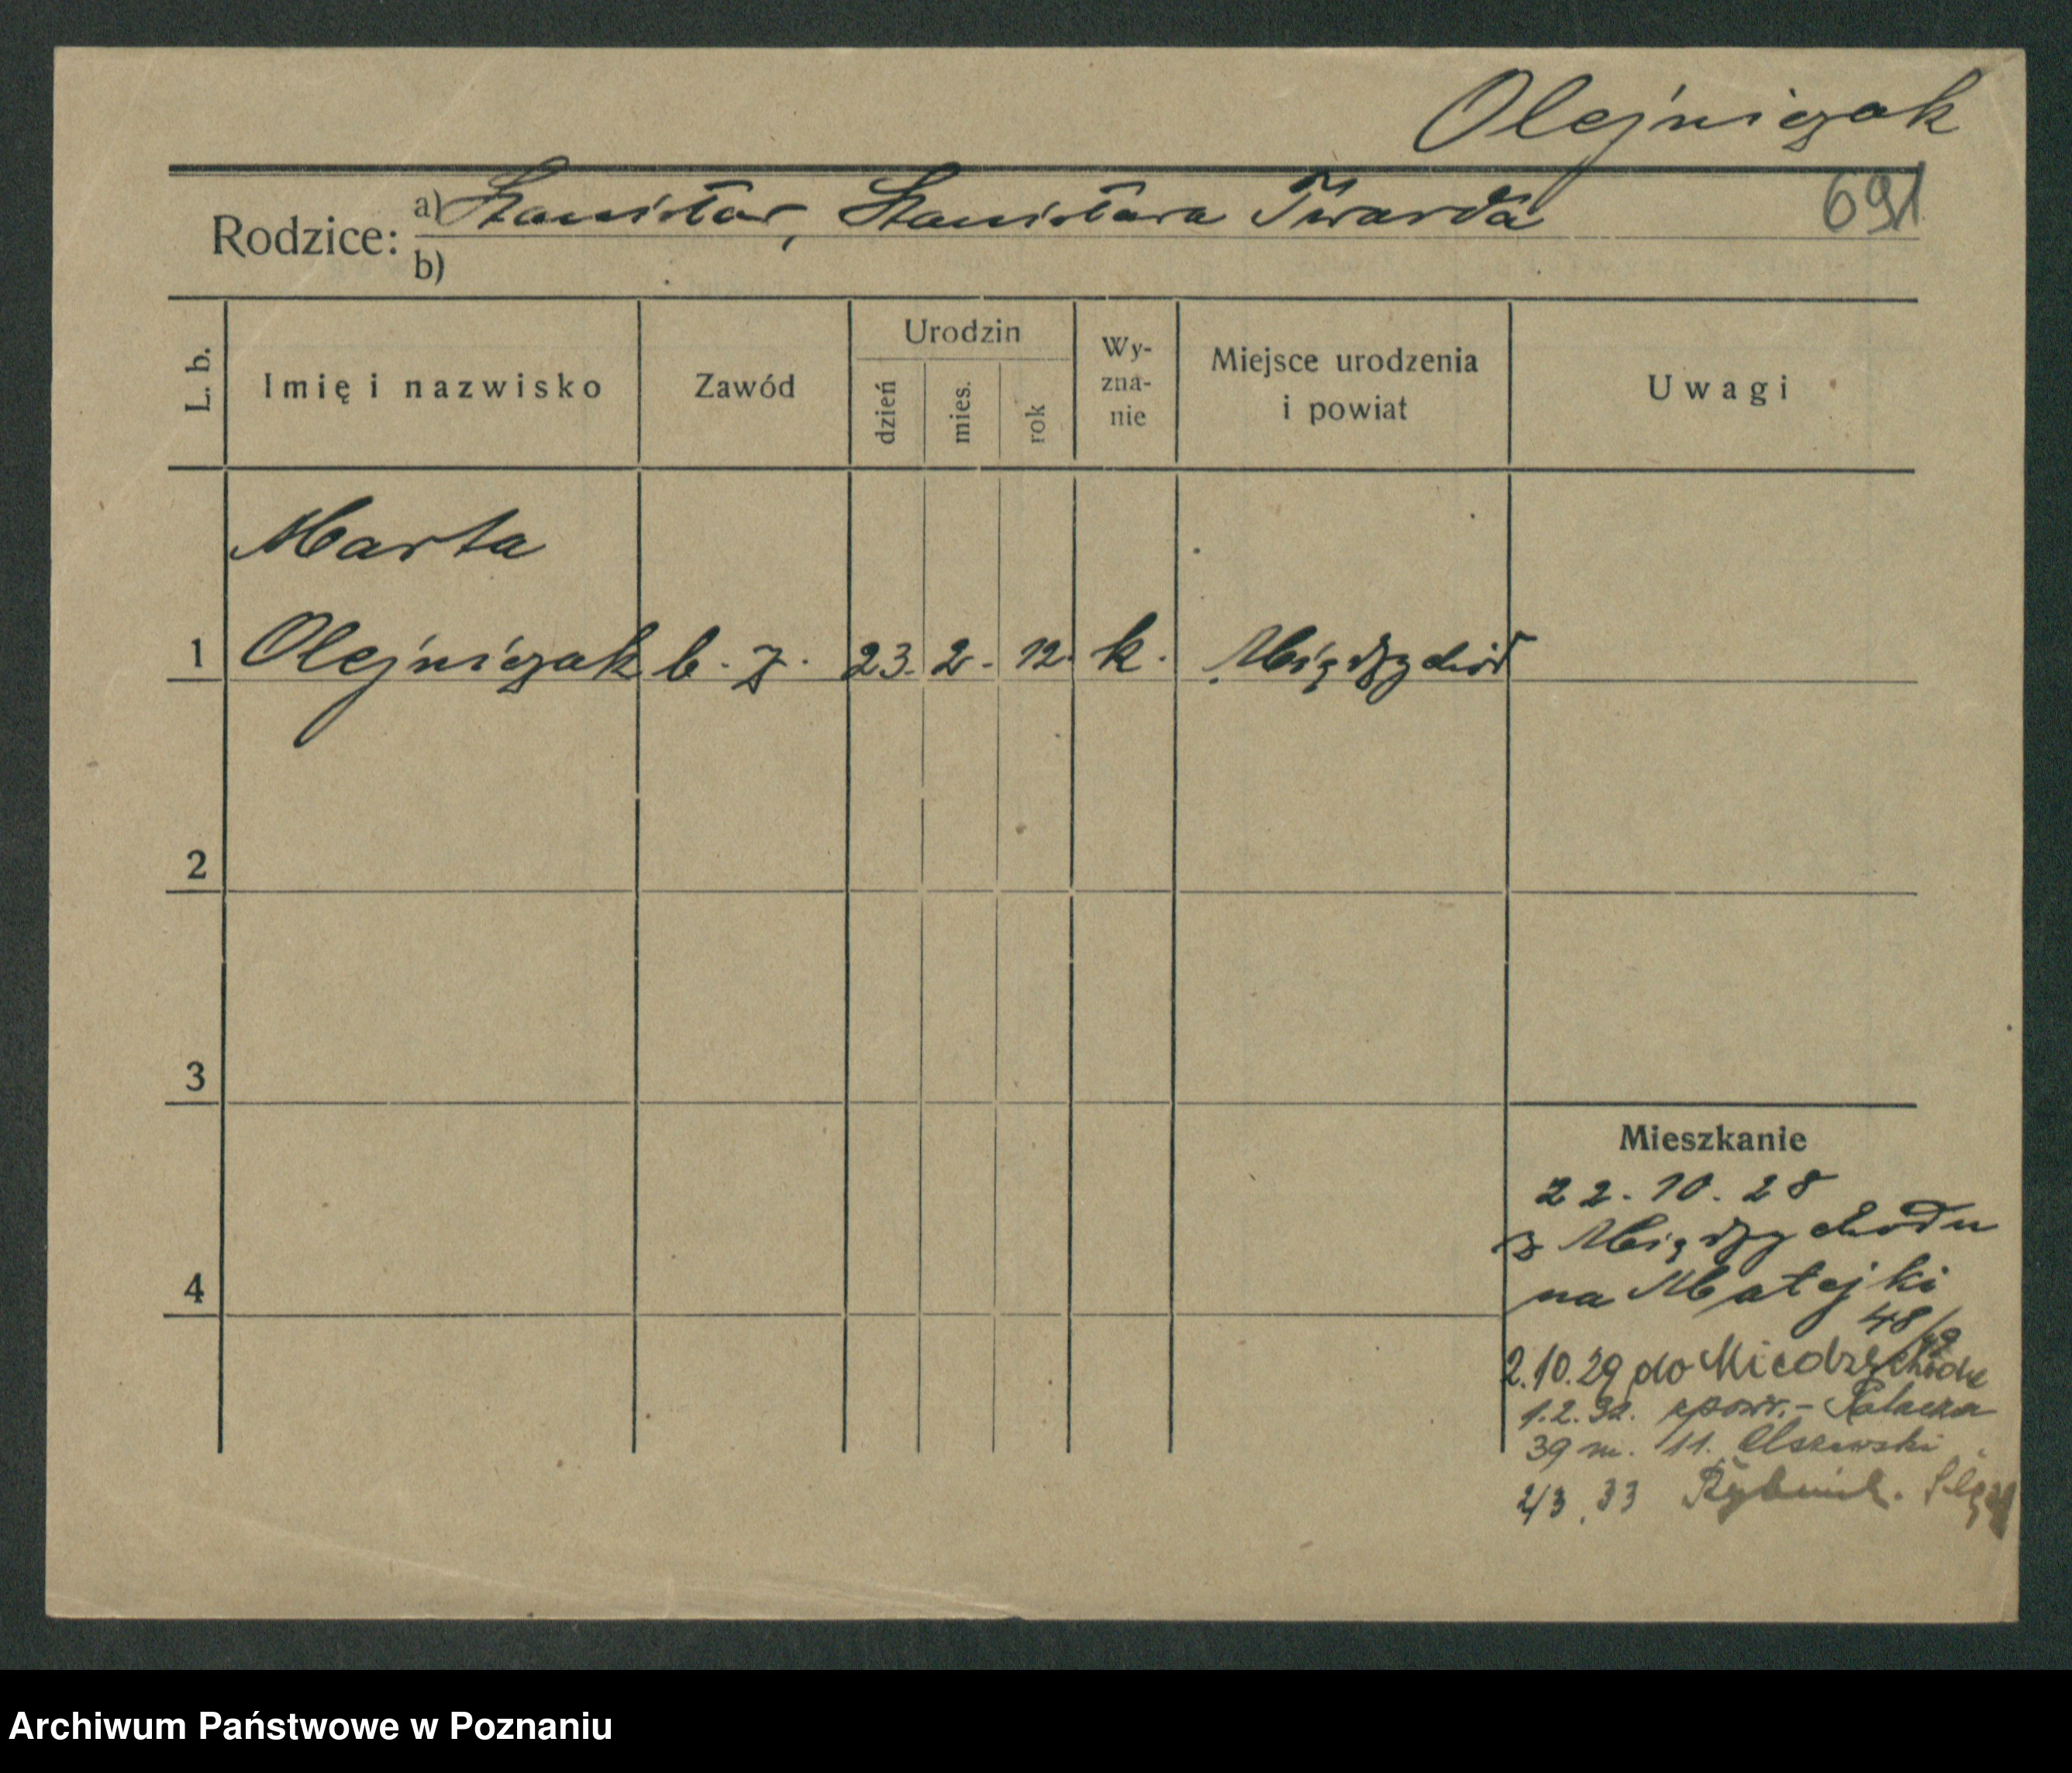 Olejniczak
691
Rodzice: a) Stanisław, Stanisława Twarda
b)
L. b. Imię i nazwisko Zawód Urodzin dzień mies. rok Wy-zna-nie Miejsce urodzenia i powiat Uwagi
Marta
1 Olejniczak b. z. 23. 2. 12. k. Międzychód
2
3
Mieszkanie
22.10.28
z Międzychodu
na Matejki
4
48/49
2.10.29 do Międzychodu
1.2.32. spowr. -
39 m. 11. Olszewski
2/3.33 Rybnik. Śląsk
Archiwum Państwowe w Poznaniu